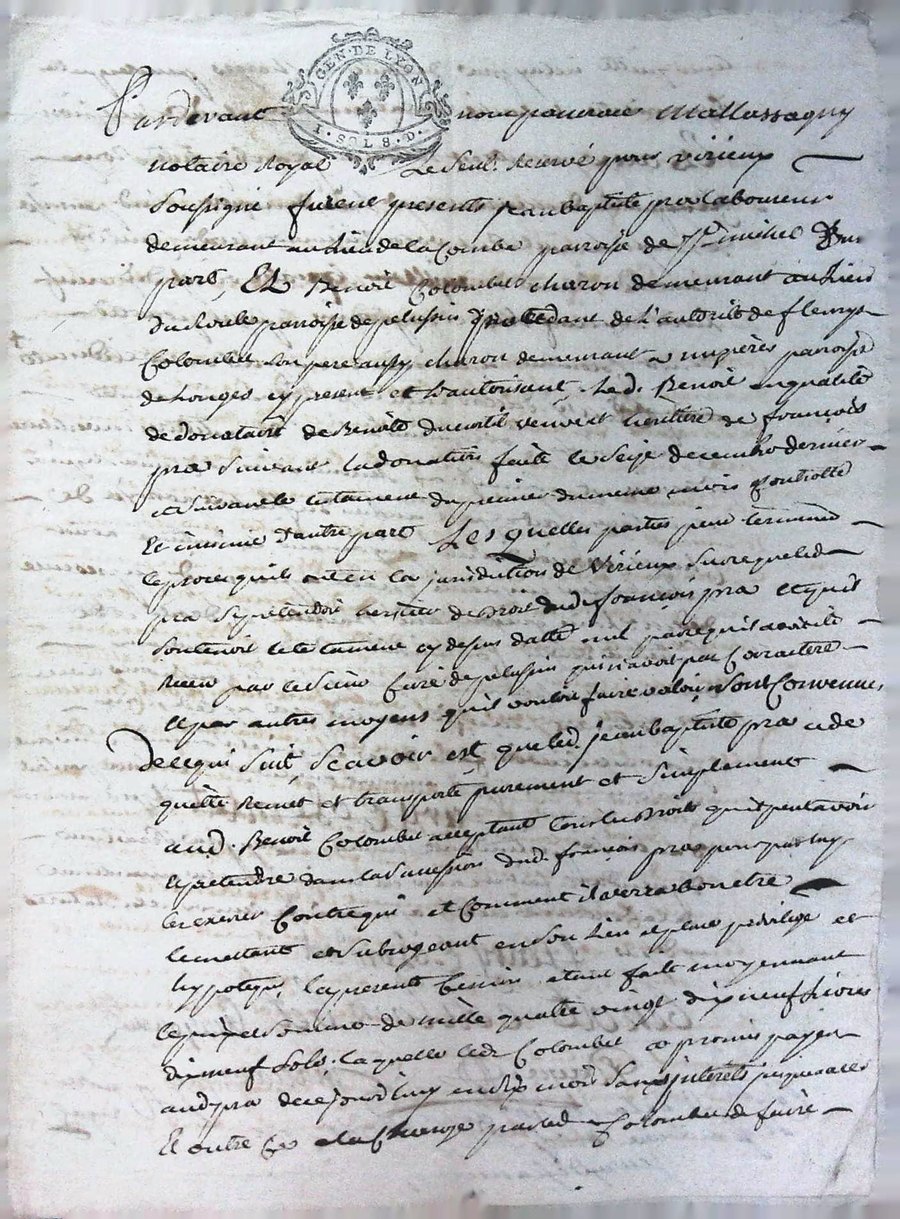 GEN · DE LYON
1 · SOL 8 · D ·
Pardevant Mallassagny
notaire Royal Le Seul reservé pour Virieux
Soussigné furent presents Jean baptiste pra laboureur
demeurant au lieu de la Combe parroisse de St michel d'un
part, Et Benoit Colombet charon demeurant au lieu
parroisse de pelussin de l'autorité de fleury
Colombet son pere aussy charon demeurant a parroisse
de Longes cy present et l'autorisant, led. Benoit en qualité
de donataire de Benoite veuve et heritiere de françois
pra suivant la donation faite le Seize decembre dernier
et suivant le testament du premier du meme mois Controllé
Et insinué d'autre part Lesquelles parties pour terminer
le proces qu'ils ont en la jurisdiction de Virieux sur ce que led.
pra se pretendoit heritier de droit dud. françois pra et qu'il
soutenoit le testament cy dessus datté nul parce qu'il avoit été
Receu par le Sieur Curé de pelussin qui n'avoit pas Caractere
et par autres moyens qu'il vouloit faire valoir Sont Convenues
de ce qui Suit, Scavoir est que led. Jean baptiste pra cede
quitte Remet et transporte purement et Simplement
aud. Benoit Colombet acceptant tous les droits qu'il peut avoir
et pretendre dans la Succession dud. françois pra pour par luy
les exercer Contre qui et Comment il verra bon etre
le mettant et Subrogeant en Son lieu et place privilege et
hypoteque, la presente Cession etant faite moyennant
le prix et Somme de mille quatre vingt dix neuf livres
dix neuf Sols, laquelle led. Colombet a promis payer
aud. pra de ce jourd'huy en Six mois Sans interets jusqu'alors
Et outre Ce a la Charge par led. Colombet de faire